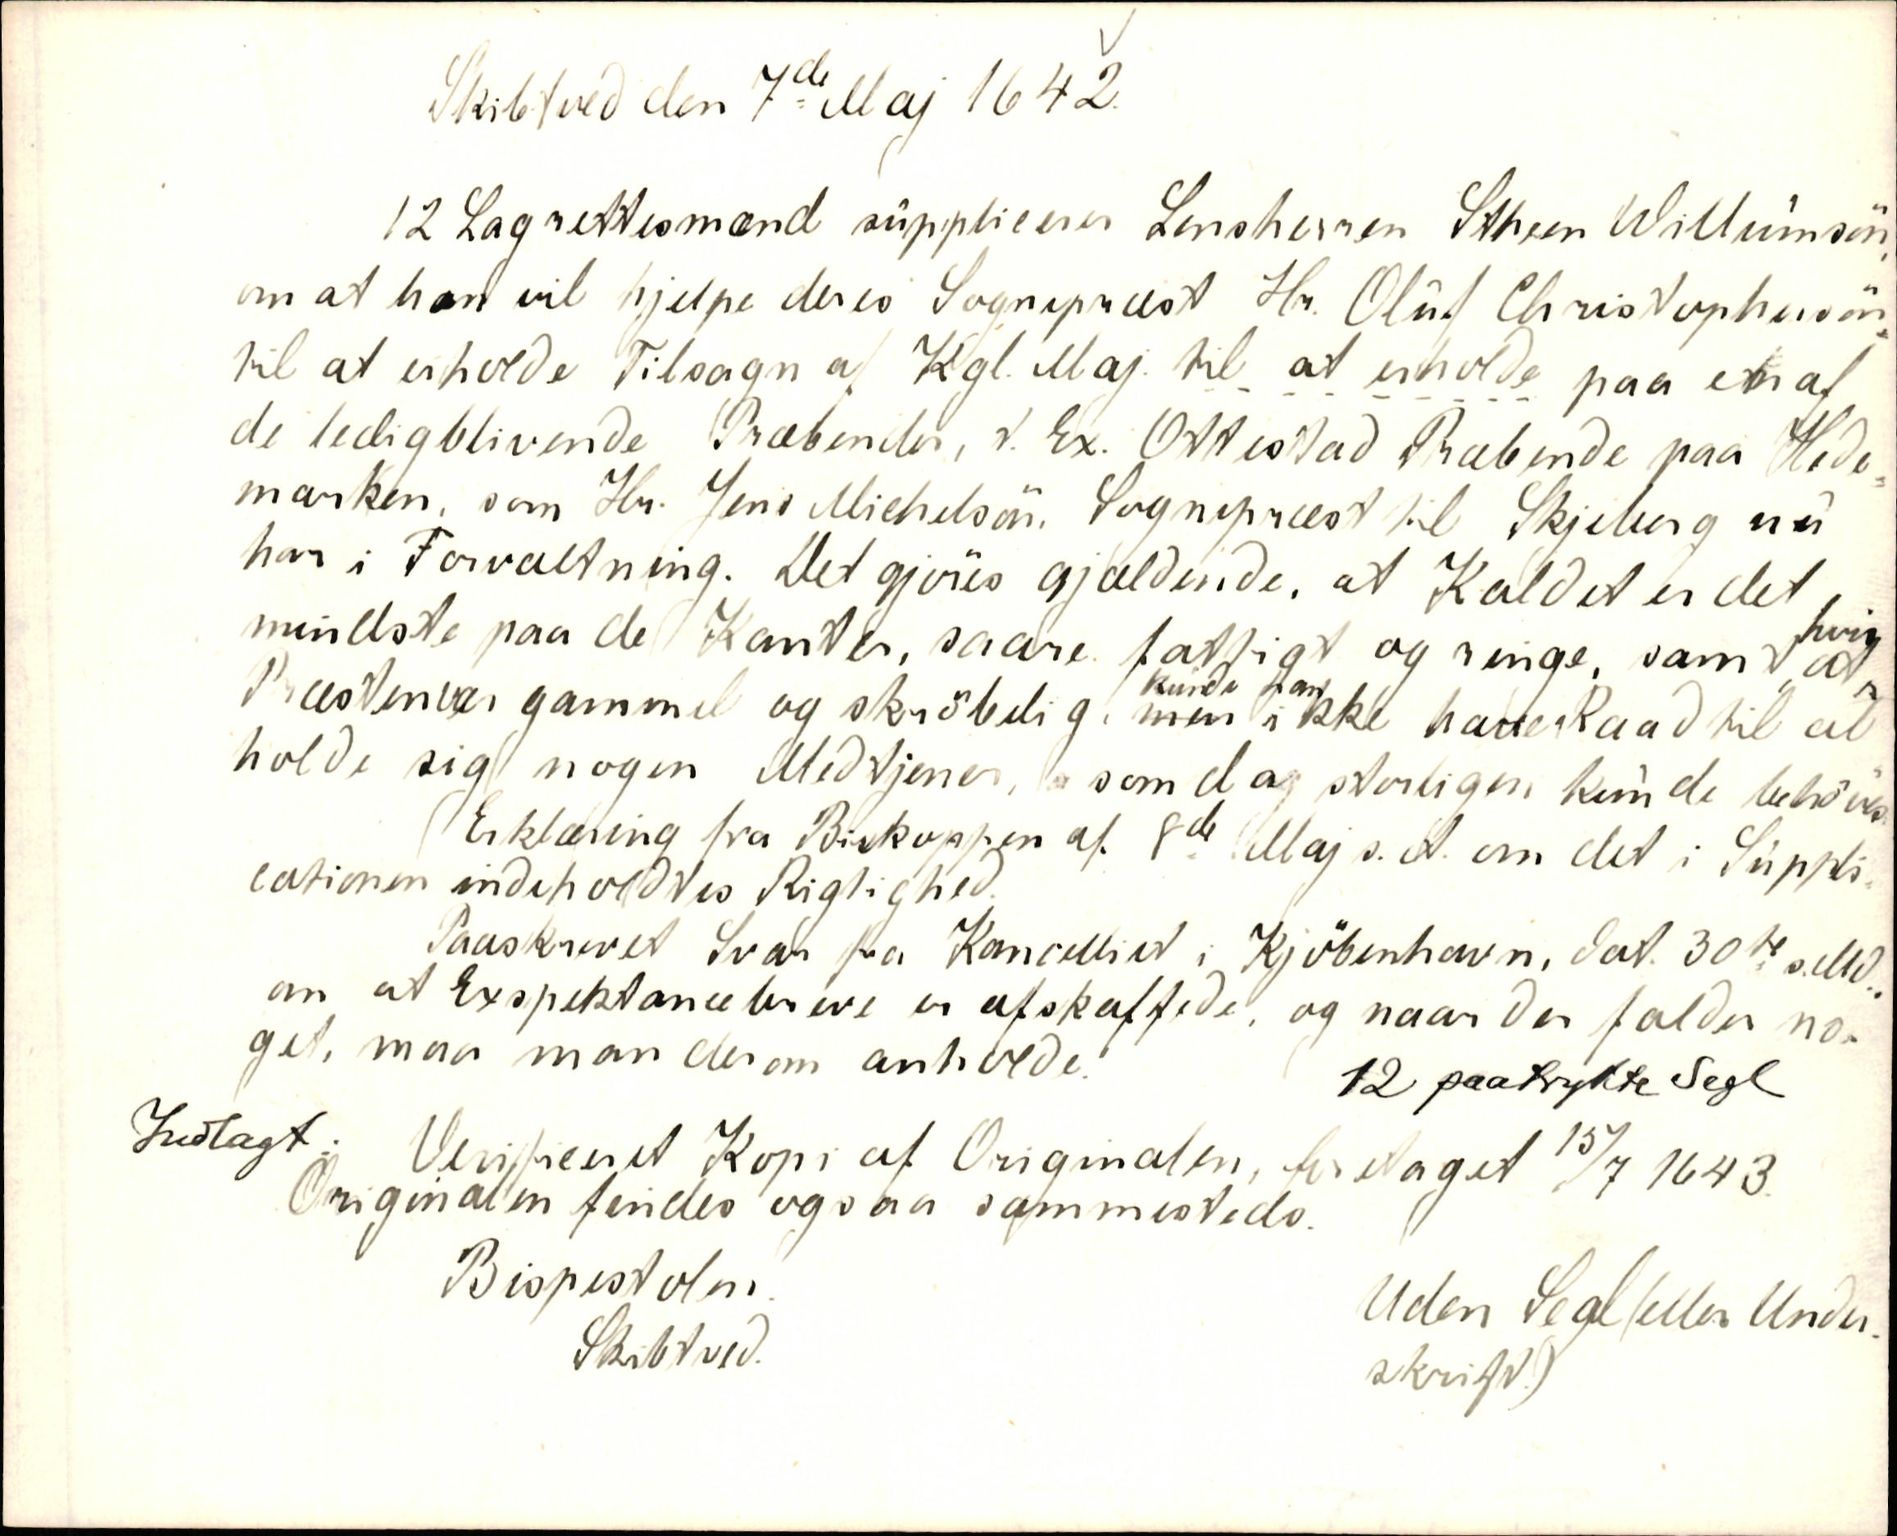 Skibtved den 7de Maj 1642.
12 Lagrettesmænd supplicerer Lensherren Stheen Willumsön,
om at han vil hjelpe deres Sognepræst Hr. Oluf Christophersön
til at erholde Tilsagn af Kgl. Maj. til at erholde paa en af
de ledigblivende Præbender, t. Ex. Ottestad Præbende paa Hede-
marken, som Hr. Jens Michelsön, Sognepræst til Skjeberg nu
har i Forvaltning. Det gjöres gjældende, at Kaldet er det
mindste paa de Kanter, saare fattigt og ringe, samt, at, hvis
Præsten var gammel og skröbelig, kunde han ikke have Raad til at
holde sig nogen Medtjener, som dog storligen kunde behöves.
(Erklæring fra Biskoppen af 8de Maj s. A. om det i Suppli-
cationen indeholdtes Rigtighed.
Paaskrevet Svar fra Kancelliet i Kjöbenhavn, dat. 30te s. Md.,
om at Exspektancebreve er afskaffede, og naar der falder no-
get, maa man derom anholde.
12 paatrykte Segl
Indlagt: Verificeret Kopi af Originalen, foretaget 15/7 1643.
Originalen findes ogsaa sammesteds.
Bispestolen.
Skibtved.
Uden Segl (eller Under-
skrift.)